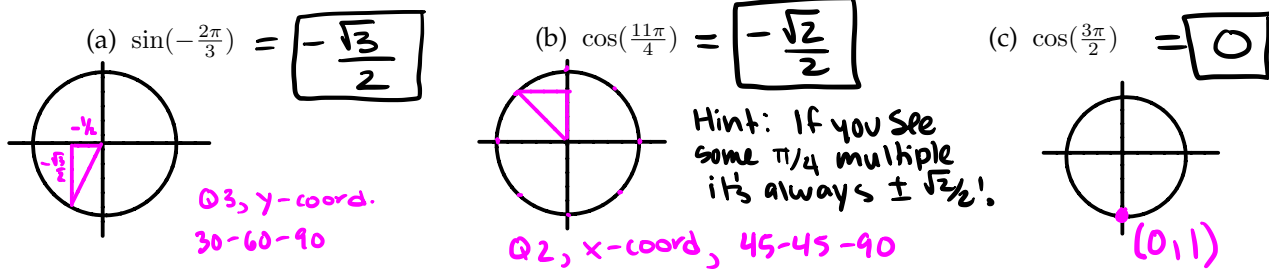 (a) sin(−2π/3) = −√3/2
-1/2
-√3/2
Q3, y-coord.
30-60-90
(b) cos(11π/4) = −√2/2
Hint: If you see
some π/4 multiple
it's always ± √2/2!
Q2, x-coord, 45-45-90
(c) cos(3π/2) = 0
(0,1)